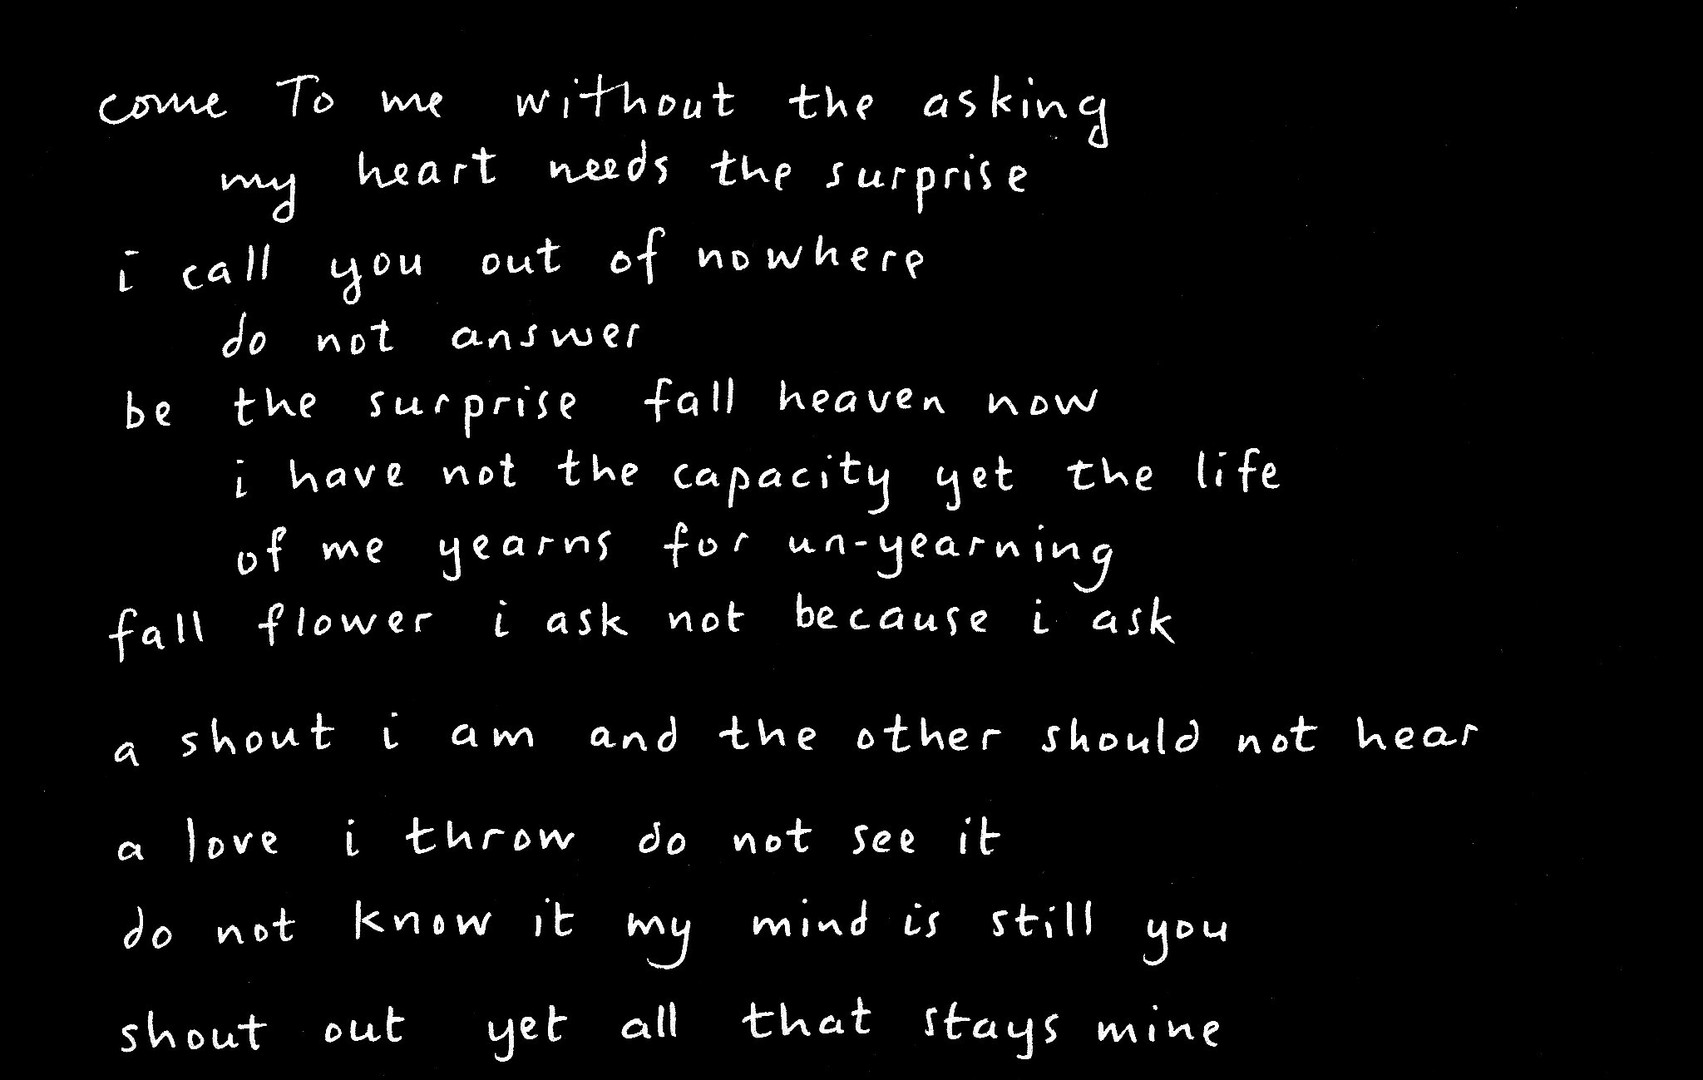 come To me without the asking
my heart needs the surprise
i call you out of nowhere
do not answer
be the surprise fall heaven now
i have not the capacity yet the life
of me yearns for un-yearning
fall flower i ask not because i ask
a shout i am and the other should not hear
a love i throw do not see it
do not know it my mind is still you
shout out yet all that stays mine